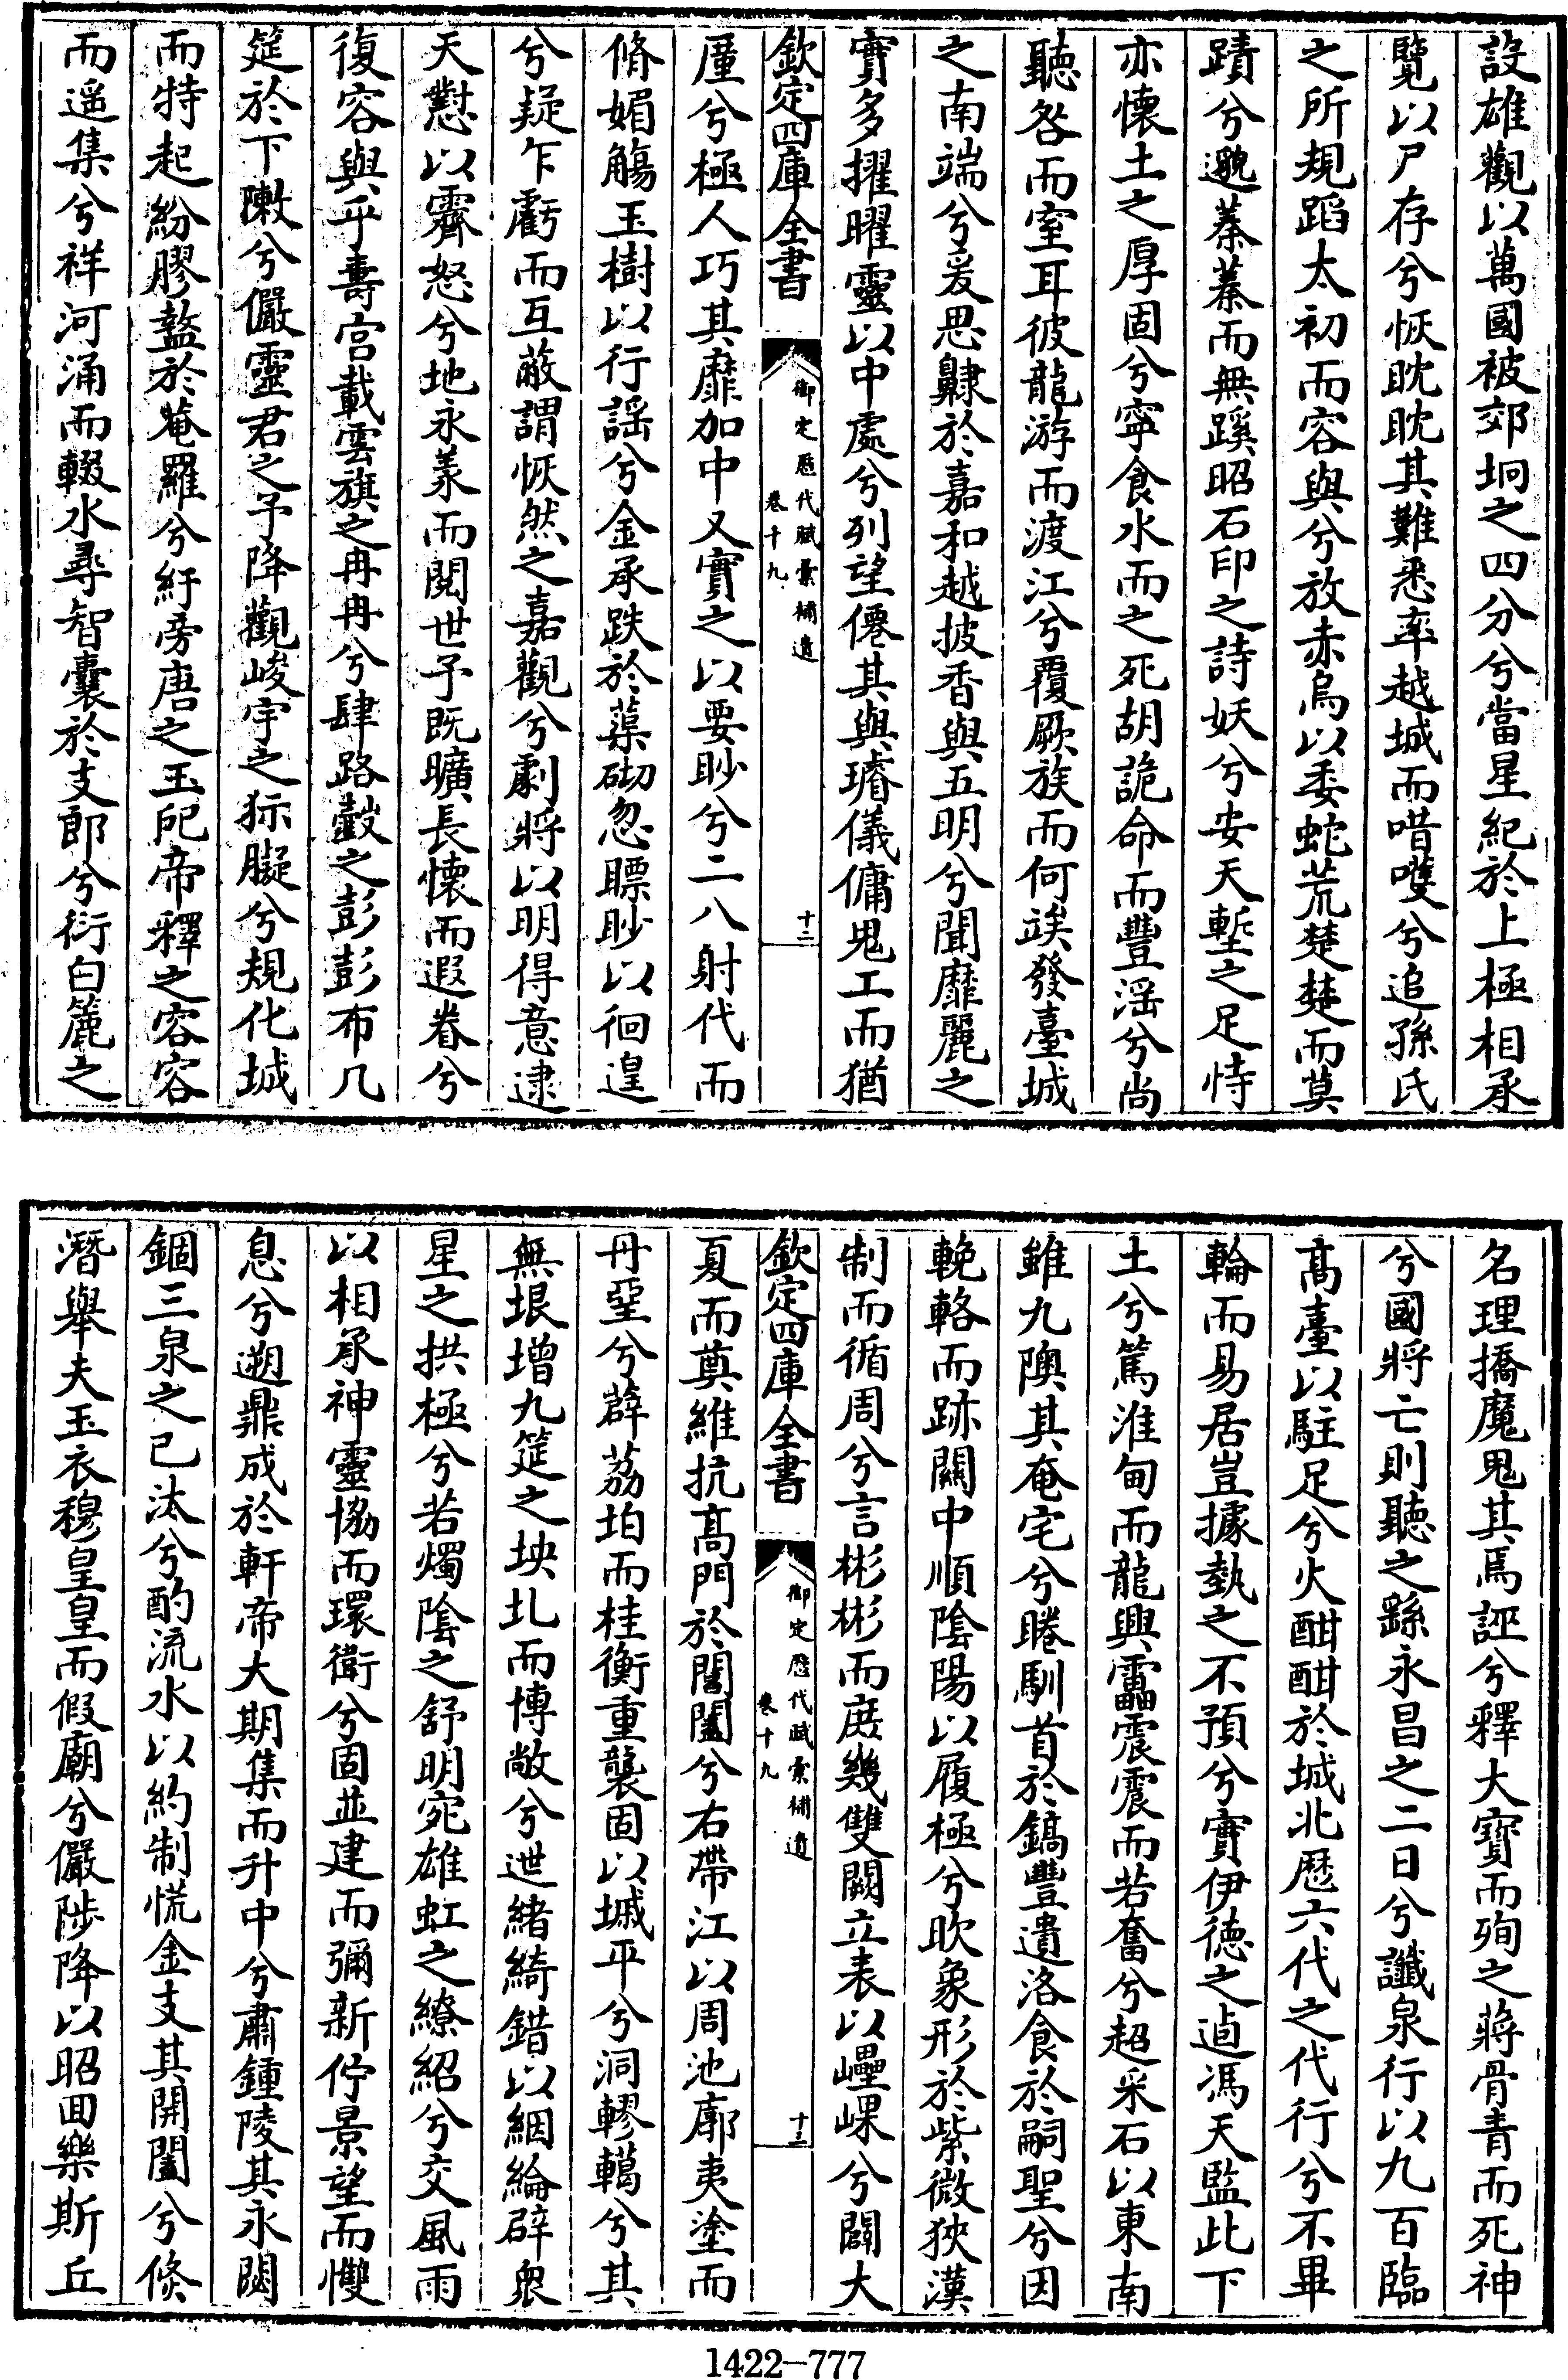 設雄觀以萬國被郊坰之四分兮當星紀於上極相承
覽以尸存兮恢眈眈其難悉率越城而唶嚄兮追孫氏
之所規蹈太初而容與兮放赤烏以委蛇荒楚楚而莫
蹟兮邈蓁蓁而無蹊昭石印之詩妖兮安天塹之足恃
亦懷土之厚固兮寧食水而之死胡詭命而豐滛兮尚
聽咎而室耳彼龍游而渡江兮覆厥族而何竢發臺城
之南端兮爰思齂於嘉和越披香與五明兮聞靡麗之
實多擢曜靈以中處兮列望僊其與璿儀傭鬼工而猶
欽定四庫全書
御定歷代賦彙補遺
卷十九
十二
厪兮極人巧其靡加中又實之以要眇兮二八射代而
脩媚觴玉樹以行謡兮金承跌於蕖砌忽瞟眇以徊遑
兮疑乍虧而互蔽謂恢然之嘉觀兮劇將以明得意逮
天懟以霽怒兮地永羕而閱世予既曠長懷而遐眷兮
復容與乎壽宫載雲旗之冉冉兮肆路鼖之彭彭布几
筵於下敶兮儼靈君之予降觀峻宇之猋擬兮規化城
而特起紛膠盭於菴羅兮紆旁唐之玉戺帝釋之容容
而遥集兮祥河涌而輟水尋智囊於支郎兮衍白簏之
名理撟魔鬼其焉誣兮釋大寶而殉之蔣骨青而死神
兮國將亡則聽之繇永昌之二日兮讖泉行以九百臨
髙臺以駐足兮火酣酣於城北歴六代之代行兮不畢
輪而易居豈據埶之不預兮實伊徳之逌馮天監此下
土兮篤淮甸而龍興靁震震而若奮兮超采石以東南
雖九隩其奄宅兮睠馴首於鎬豐遺洛食於嗣聖兮因
輓輅而跡闗中順隂陽以履極兮昳象形於紫微狹漢
制而循周兮言彬彬而庶幾雙闕立表以㠥嵲兮闢大
欽定四庫全書
御定歷代賦彙補遺
卷十九
十三
夏而奠維抗髙門於閶闔兮右帶江以周池廓夷塗而
丹堊兮薜荔珀而桂衡重襲固以墄平兮洞轇轕兮其
無垠增九筵之坱圠而博敞兮迣緒綺錯以絪綸辟衆
星之拱極兮若燭隂之舒明宛雄虹之繚紹兮交風雨
以相承神靈協而環衛兮固並建而彌新佇景望而慺
息兮遡鼎成於軒帝大期集而升中兮肅鍾陵其永閟
錮三泉之已汰兮酌流水以約制慌金支其開闔兮倐
潛舉夫玉衣穆皇皇而假廟兮儼陟降以昭囬樂斯丘
1422-777